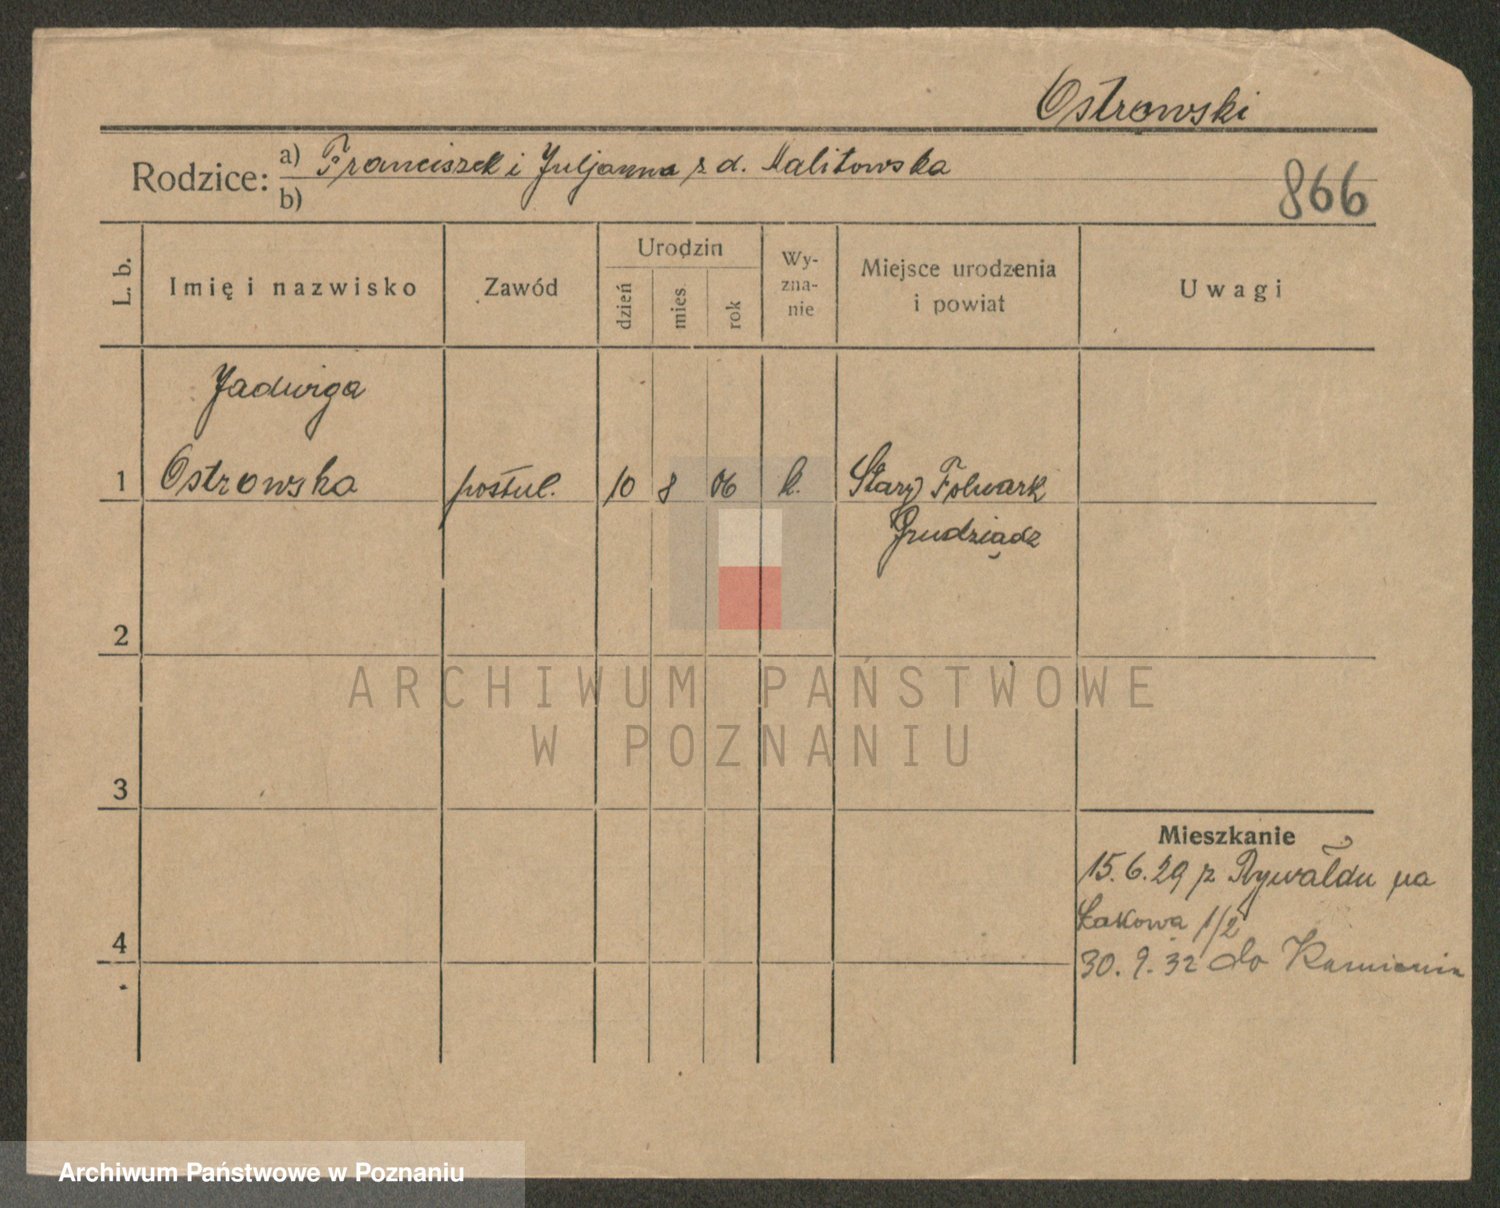 Ostrowski
Rodzice: a) Franciszek i Juljanna z d. Malitowska
b)
866
L. b.
Imię i nazwisko
Zawód
Urodzin
dzień
mies
rok
Wy-
zna-
nie
Miejsce urodzenia
i powiat
Uwagi
Jadwiga
1 Ostrowska postul. 10 8 06 k. Stary Folwark
Grudziądz
2
ARCHIWUM PAŃSTWOWE
W POZNANIU
3
Mieszkanie
15.6.29 z Rywałdu na
Łąkowa 1/2
4
30.9.32 do Kamienia
Archiwum Państwowe w Poznaniu